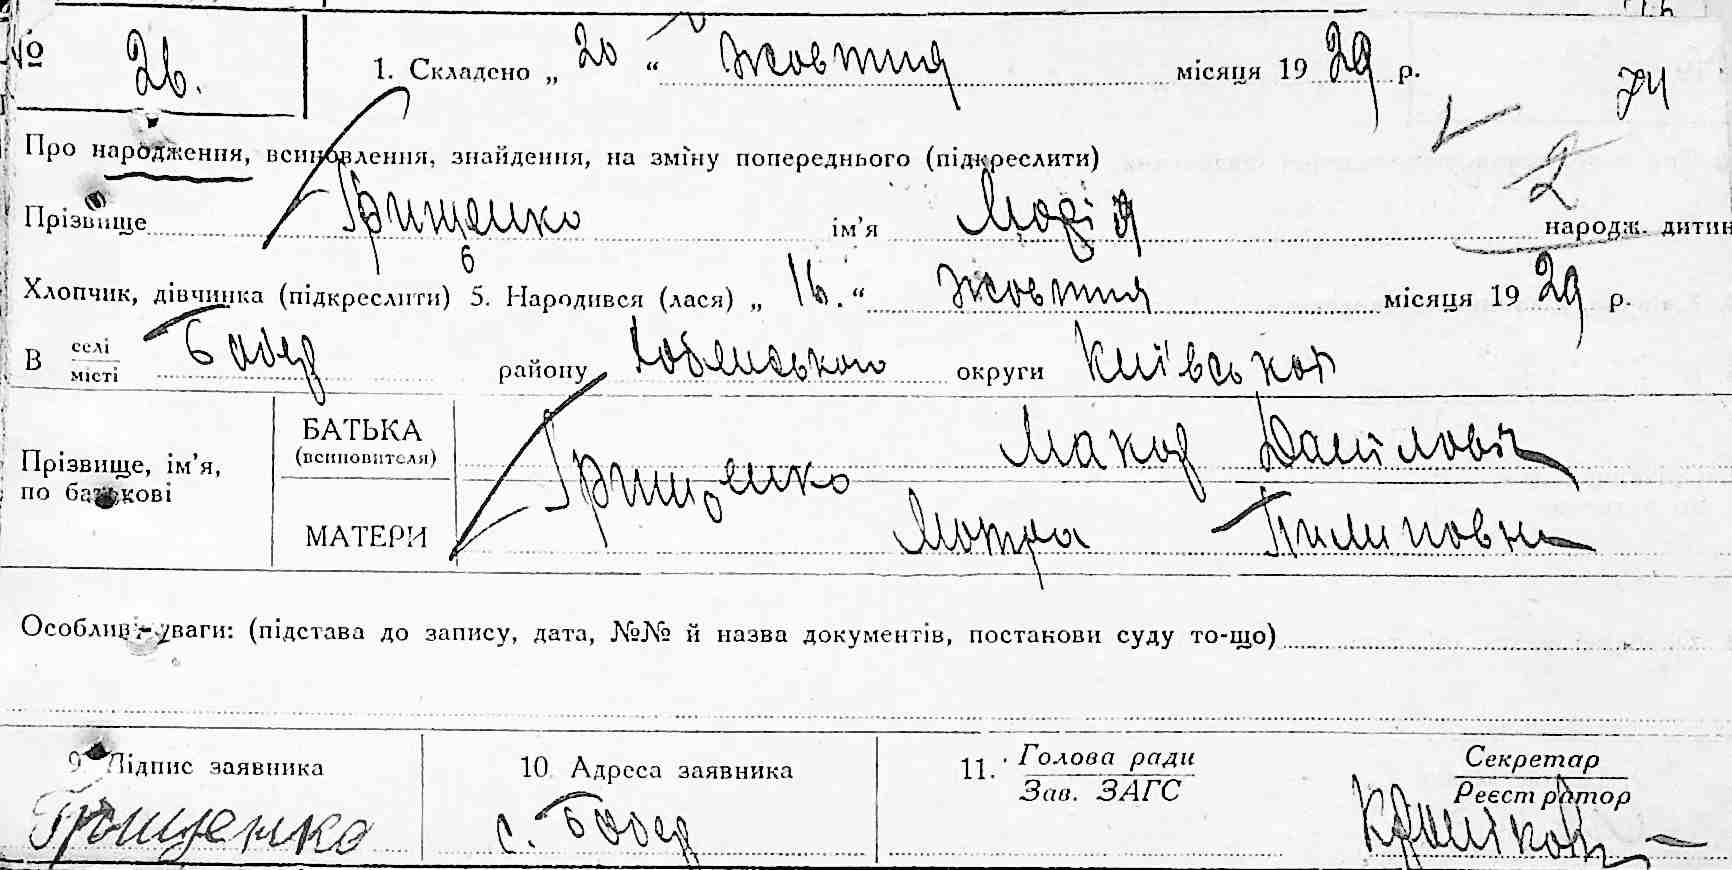 № 26. 1. Складено „ 20 “ жовтня місяця 1929 р. 74
Про народження, всиновлення, знайдення, на зміну попереднього (підкреслити) 2
Прізвище Грищенко ім'я народж. дитин
Хлопчик, дівчинка (підкреслити) 5. Народився (лася) „ 16. “ жовтня місяця 1929 р.
В селі Бобер району округи Київської
місті
Прізвище, ім'я, по батькові
БАТЬКА (всиновителя) Макар Данілович
Грищенко
МАТЕРИ Мотря Пилиповна
Особлив уваги: (підстава до запису, дата, №№ й назва документів, постанови суду то-що)
9 Підпис заявника 10. Адреса заявника 11. Голова ради Секретар
Зав. ЗАГС Реєстратор
Грищенко с. Бобер